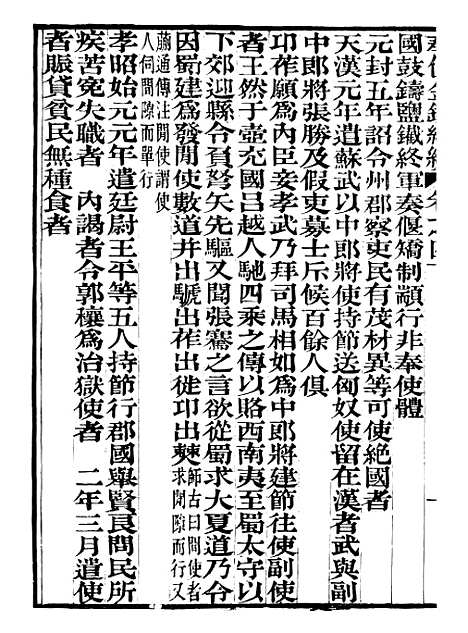 國鼓鑄鹽鐵終軍奏偃矯制顓行非奉使體
元封五年詔令州郡察吏民有茂材異等可使絕國者
天漢元年遣蘇武以中郎將使持節送匈奴使留在漢者武與副
中郎將張勝及假吏募士斥候百餘人俱
卭莋願爲內臣妾孝武乃拜司馬相如爲中郎將建節往使副使
者王然于壺充國呂越人馳四乘之傳以賂西南夷至蜀太守以
下郊迎縣令負弩矢先驅又聞張騫之言欲從蜀求大夏道乃令
因蜀犍爲發閒使數道并出駹出莋出徙卭出僰師古曰閒使者求閒隙而行又
蕭通傳注閒使謂使人伺閒隙而單行
孝昭始元元年遣廷尉王平等五人持節行郡國舉賢良問民所
疾苦冤失職者　內謁者令郭穰爲治獄使者　二年三月遣使
者賑貸貧民無種食者